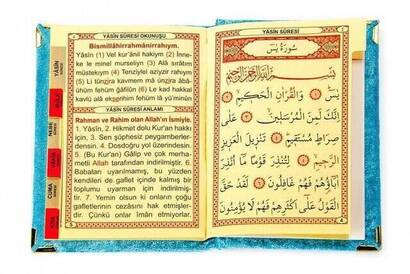 YÂSÎN SÛRESİ OKUNUŞU
Bismillâhirrahmânirrahıym.
Yâsîn (1) Vel kur'ânil hakiym (2) İnne-
ke le minel murseliyn (3) Alâ sırâtım
müstekıym (4) Tenziylel aziyzir rahıym
(5) Li tünzira kavmem mâ ünzira âbâ-
ühüm fehüm ğâfilûn (6) Le kad hakkal
kavlü alâ ekserihim fehüm lâ yü'minûn
YÂSÎN SÛRESİ ANLAMI
Rahman ve Rahim olan Allah'ın İsmiyle.
1. Yâsîn, 2. Hikmet dolu Kur'an hakkı
için, 3. Sen şüphesiz peygamberler-
densin. 4. Dosdoğru yol üzerindesin.
5. (Bu Kur'an) Gâlip ve çok merha-
metli Allah tarafından indirilmiştir. 6.
Babaları uyarılmamış, bu yüzden
kendileri de gaflet içinde kalmış bir
toplumu uyarman için indirilmiş-
tir. 7. Yemin olsun ki onların çoğu
gafletlerinin cezasını hak etmişler-
dir. Çünkü onlar îmân etmiyorlar.
YÂSÎN SÛRESİ
سُورَةُ يٰسٓ
بِسْمِ اللّٰهِ الرَّحْمٰنِ الرَّحِيمِ
يٰسٓ ۝ وَالْقُرْاٰنِ الْحَكِيمِ ۝
اِنَّكَ لَمِنَ الْمُرْسَلِينَ ۝ عَلٰى
صِرَاطٍ مُسْتَقِيمٍ ۝ تَنْزِيلَ الْعَزِيزِ
الرَّحِيمِ ۝ لِتُنْذِرَ قَوْمًا مَٓا اُنْذِرَ
اٰبَٓاؤُ۬هُمْ فَهُمْ غَافِلُونَ ۝ لَقَدْ حَقَّ
الْقَوْلُ عَلٰٓى اَكْثَرِهِمْ فَهُمْ لَا يُؤْمِنُونَ
YÂSÎN
CUMA